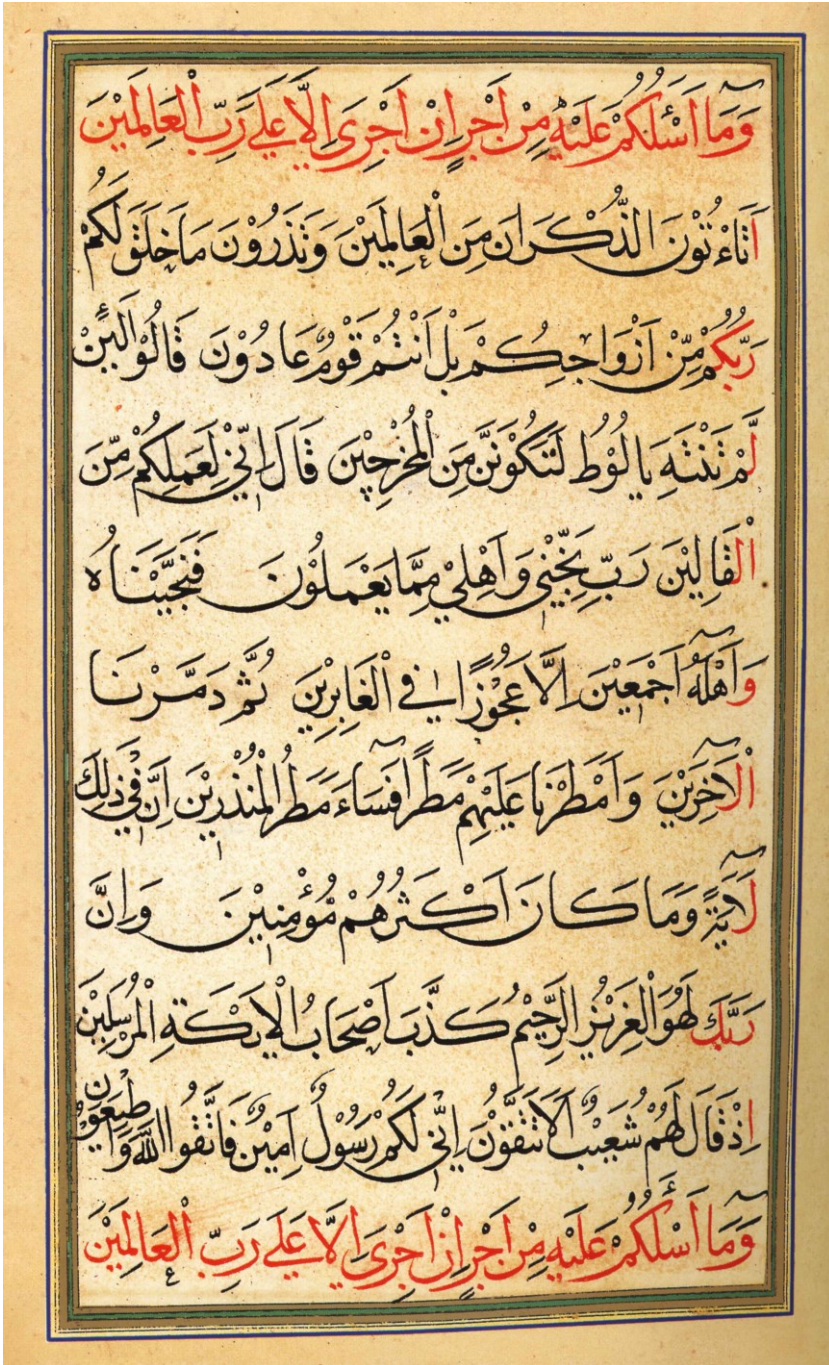 وَمَآ اَسْئَلُكُمْ عَلَيْهِ مِنْ اَجْرٍ اِنْ اَجْرِيَ اِلَّا عَلٰي رَبِّ الْعَالَمِيْنَ
اَتَاءْتُوْنَ الذُّكْرَانَ مِنَ الْعَالَمِيْنَ وَتَذَرُوْنَ مَاخَلَقَ لَكُمْ
رَبُّكُمْ مِّنْ اَزْوَاجِكُمْ بَلْ اَنْتُمْ قَوْمٌ عَادُوْنَ قَالُوْا لَئِنْ
لَّمْ تَنْتَهِ يَا لُوْطُ لَتَكُوْنَنَّ مِنَ الْمُخْرَجِيْنَ قَالَ اِنِّيْ لِعَمَلِكُمْ مِّنَ
الْقَالِيْنَ رَبِّ نَجِّنِيْ وَاَهْلِيْ مِمَّا يَعْمَلُوْنَ فَنَجَّيْنَاهُ
وَاَهْلَهُٓ اَجْمَعِيْنَ اِلَّا عَجُوْزًا فِي الْغَابِرِيْنَ ثُمَّ دَمَّرْنَا
الْآخَرِيْنَ وَاَمْطَرْنَا عَلَيْهِمْ مَطَرًا فَسَآءَ مَطَرُ الْمُنْذَرِيْنَ اِنَّ فِيْ ذٰلِكَ
لَآيَةً وَمَا كَانَ اَكْثَرُهُمْ مُّؤْمِنِيْنَ وَاِنَّ
رَبَّكَ لَهُوَ الْعَزِيْزُ الرَّحِيْمُ كَذَّبَ اَصْحَابُ الْاَيْكَةِ الْمُرْسَلِيْنَ
اِذْ قَالَ لَهُمْ شُعَيْبٌ اَلَا تَتَّقُوْنَ اِنِّيْ لَكُمْ رَسُوْلٌ اَمِيْنٌ فَاتَّقُوا اللّٰهَ وَاَطِيْعُوْنِ
وَمَآ اَسْئَلُكُمْ عَلَيْهِ مِنْ اَجْرٍ اِنْ اَجْرِيَ اِلَّا عَلٰي رَبِّ الْعَالَمِيْنَ